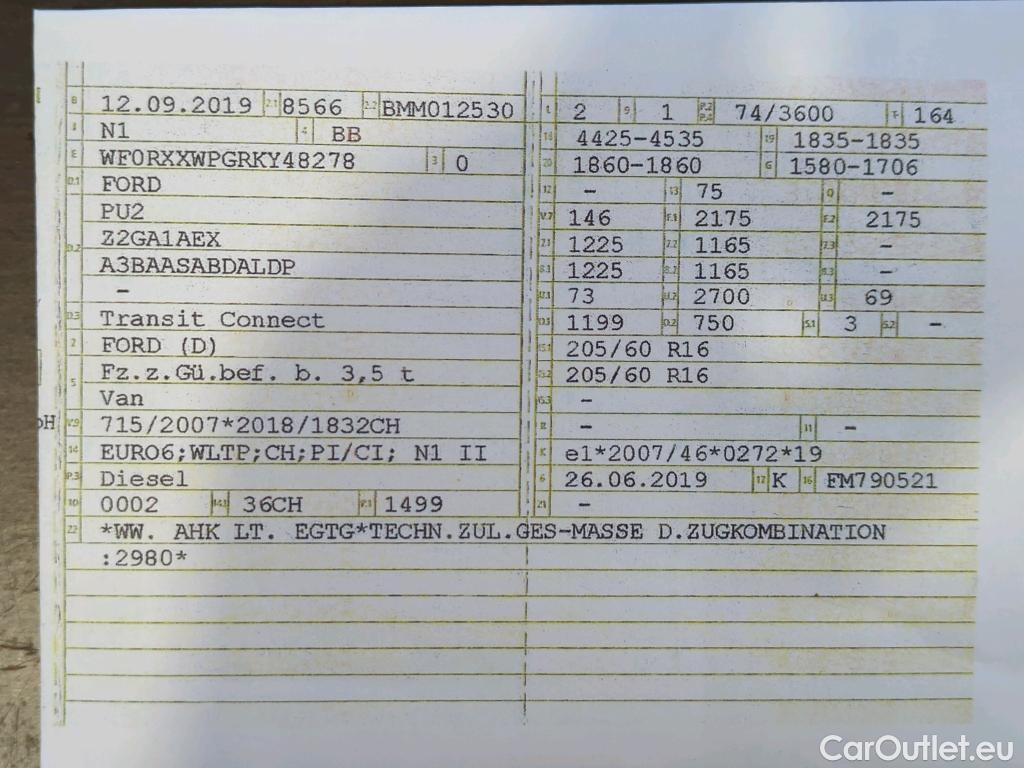 B 12.09.2019 2.1 8566 2.2 BMM012530 L 2 9 1 P.2 P.4 74/3600 T 164
J N1 4 BB 18 4425-4535 19 1835-1835
E WF0RXXWPGRKY48278 3 0 20 1860-1860 G 1580-1706
D.1 FORD 12 - 13 75 Q -
PU2 V.7 146 F.1 2175 F.2 2175
D.2 Z2GA1AEX 7.1 1225 7.2 1165 7.3 -
A3BAASABDALDP 8.1 1225 8.2 1165 8.3 -
- U.1 73 U.2 2700 U.3 69
D.3 Transit Connect O.1 1199 O.2 750 S.1 3 S.2 -
2 FORD (D) 15.1 205/60 R16
5 Fz.z.Gü.bef. b. 3,5 t 15.2 205/60 R16
Van 15.3 -
V.9 715/2007*2018/1832CH R - 11 -
14 EURO6;WLTP;CH;PI/CI; N1 II K e1*2007/46*0272*19
P.3 Diesel 6 26.06.2019 17 K 16 FM790521
10 0002 14.1 36CH P.1 1499 21 -
22 *WW. AHK LT. EGTG*TECHN.ZUL.GES-MASSE D.ZUGKOMBINATION
:2980*
CarOutlet.eu